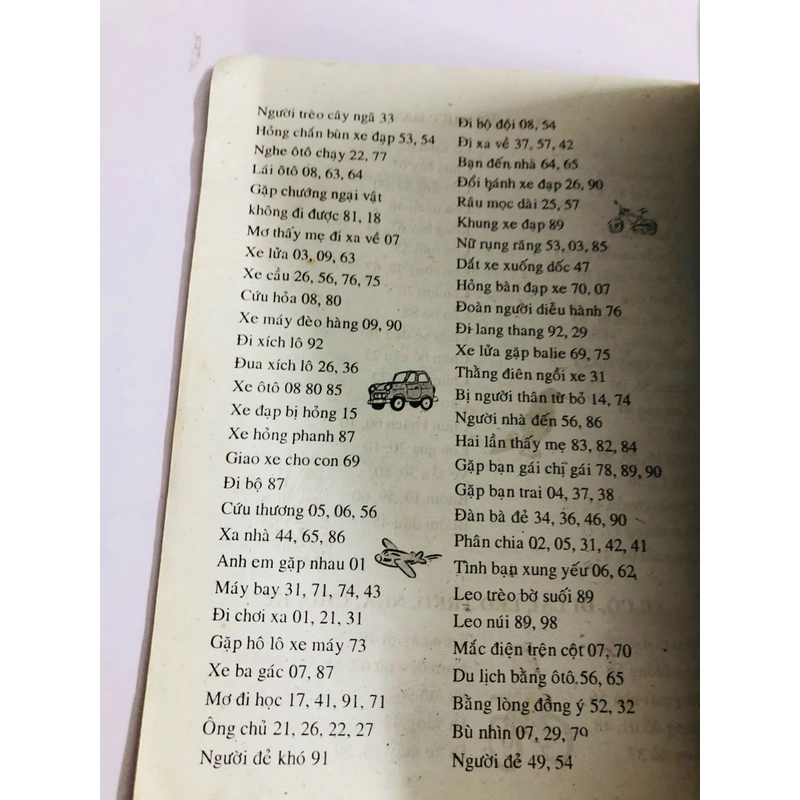 Người trèo cây ngã 33
Hỏng chấn bùn xe đạp 53, 54
Nghe ôtô chạy 22, 77
Lái ôtô 08, 63, 64
Gặp chướng ngại vật
không đi được 81, 18
Mơ thấy mẹ đi xa về 07
Xe lửa 03, 09, 63
Xe cẩu 26, 56, 76, 75
Cứu hỏa 08, 80
Xe máy đèo hàng 09, 90
Đi xích lô 92
Đua xích lô 26, 36
Xe ôtô 08 80 85
Xe đạp bị hỏng 15
Xe hỏng phanh 87
Giao xe cho con 69
Đi bộ 87
Cứu thương 05, 06, 56
Xa nhà 44, 65, 86
Anh em gặp nhau 01
Máy bay 31, 71, 74, 43
Đi chơi xa 01, 21, 31
Gặp hô lô xe máy 73
Xe ba gác 07, 87
Mơ đi học 17, 41, 91, 71
Ông chủ 21, 26, 22, 27
Người đẻ khó 91
Đi bộ đội 08, 54
Đi xa về 37, 57, 42
Bạn đến nhà 64, 65
Đổi bánh xe đạp 26, 90
Râu mọc dài 25, 57
Khung xe đạp 89
Nữ rụng răng 53, 03, 85
Dắt xe xuống dốc 47
Hỏng bàn đạp xe 70, 07
Đoàn người diễu hành 76
Đi lang thang 92, 29
Xe lửa gặp balie 69, 75
Thằng điên ngồi xe 31
Bị người thân từ bỏ 14, 74
Người nhà đến 56, 86
Hai lần thấy mẹ 83, 82, 84
Gặp bạn gái chị gái 78, 89, 90
Gặp bạn trai 04, 37, 38
Đàn bà đẻ 34, 36, 46, 90
Phân chia 02, 05, 31, 42, 41
Tình bạn xung yếu 06, 62
Leo trèo bờ suối 89
Leo núi 89, 98
Mắc điện trên cột 07, 70
Du lịch bằng ôtô 56, 65
Bằng lòng đồng ý 52, 32
Bù nhìn 07, 29, 79
Người đẻ 49, 54